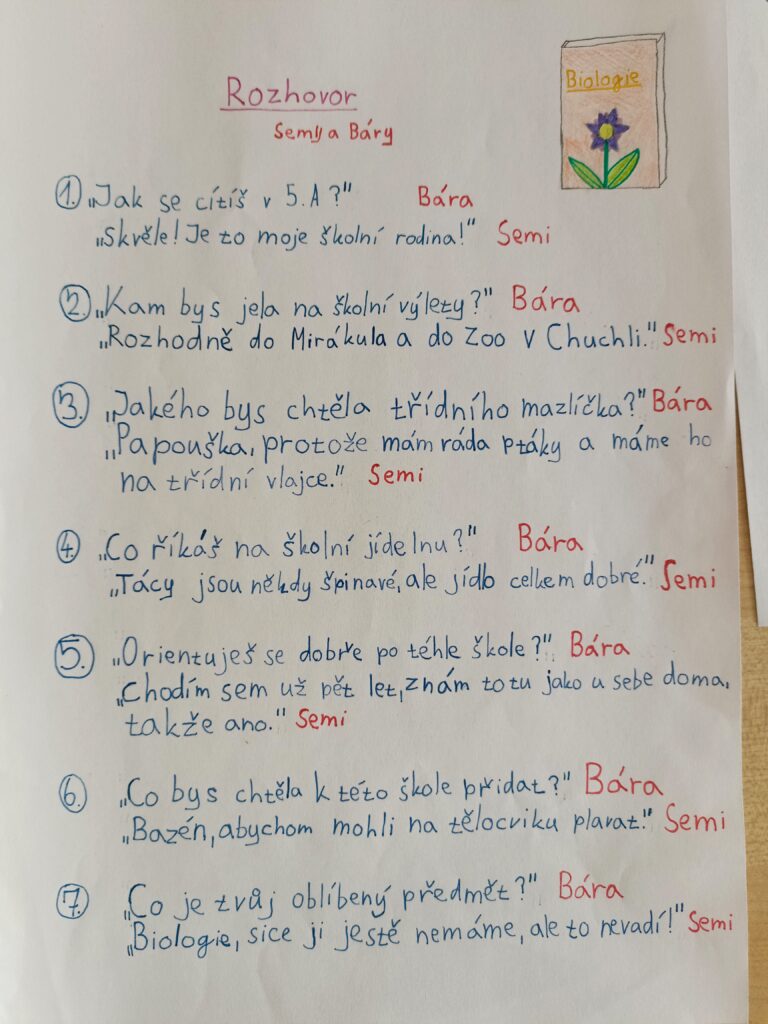 Rozhovor
Semi a Báry
Biologie
1. „Jak se cítíš v 5.A?" Bára
„Skvěle! Je to moje školní rodina!" Semi
2. „Kam bys jela na školní výlety?" Bára
„Rozhodně do Mirákula a do Zoo v Chuchli." Semi
3. „Jakého bys chtěla třídního mazlíčka?" Bára
„Papouška, protože mám ráda ptáky a máme ho
na třídní vlajce." Semi
4. „Co říkáš na školní jídelnu?" Bára
„Tácy jsou někdy špinavé, ale jídlo celkem dobré." Semi
5. „Orientuješ se dobře po téhle škole?" Bára
„Chodím sem už pět let, znám to tu jako u sebe doma,
takže ano." Semi
6. „Co bys chtěla k této škole přidat?" Bára
„Bazén, abychom mohli na tělocviku plavat." Semi
7. „Co je tvůj oblíbený předmět?" Bára
„Biologie, sice ji jestě nemáme, ale to nevadí!" Semi